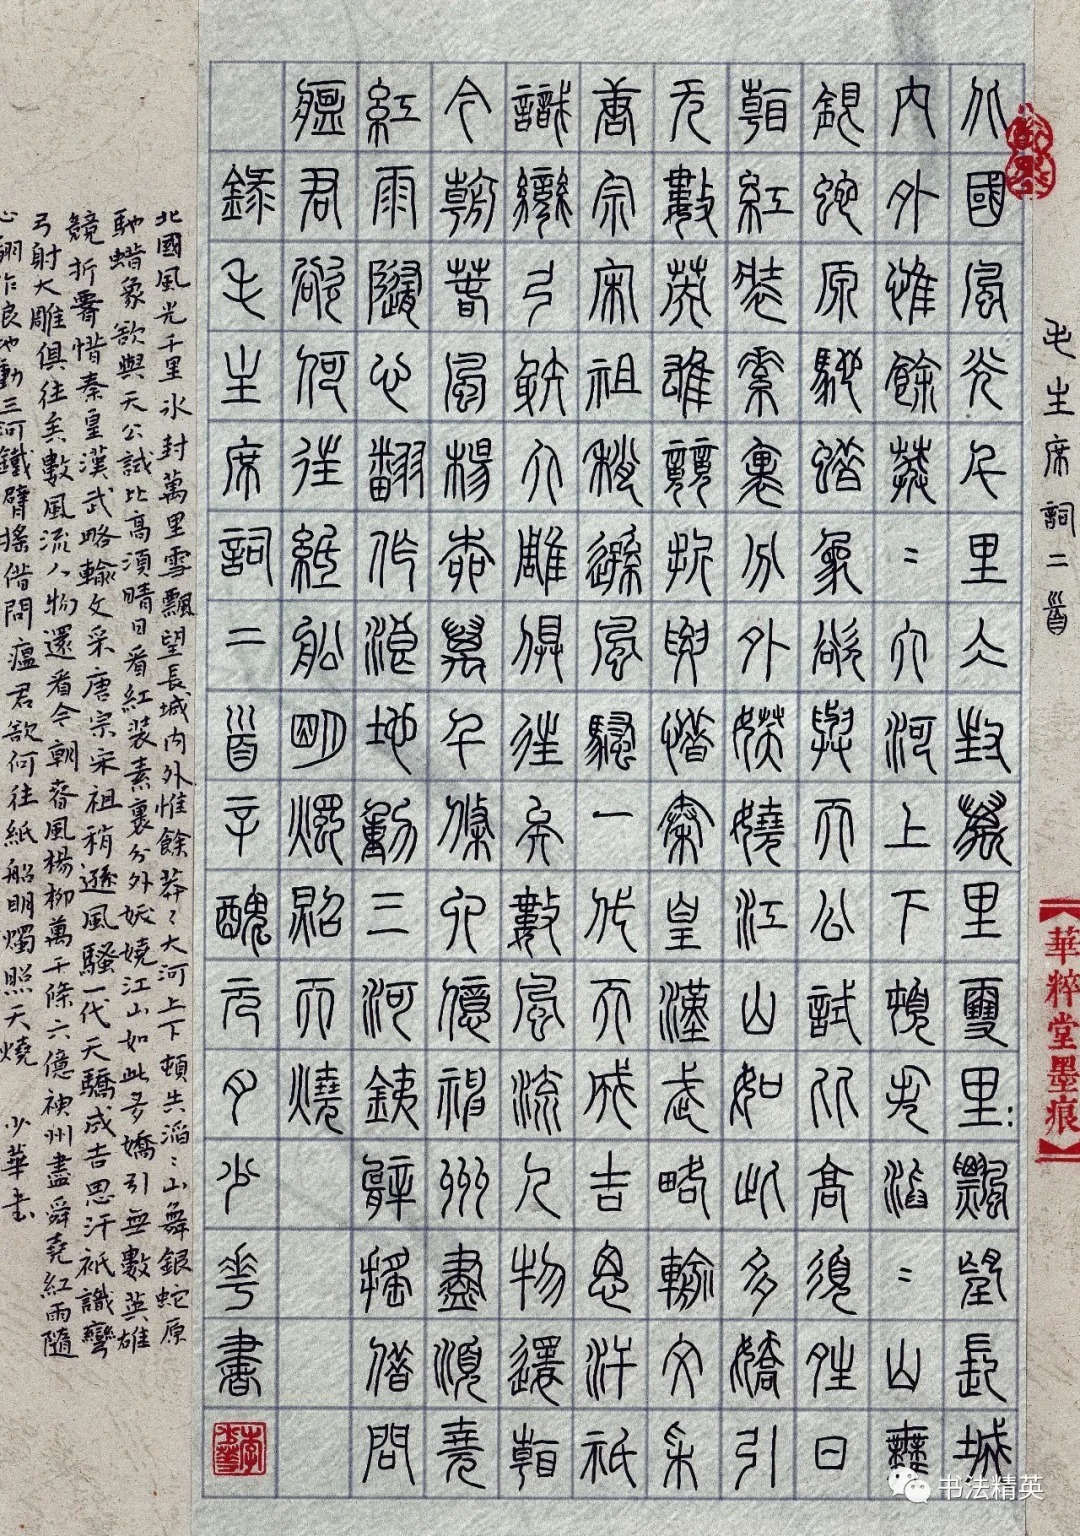 毛主席詞二首
【華粹堂墨痕】
北國風光千里仌封萬里雪里:飄望長城
内外惟餘莽〻大河上下頓失滔〻山舞
銀蛇原馳蜡象欲與天公試比高須晴日
看紅裝素裹分外妖嬈江山如此多嬌引
无數英雄競折腰惜秦皇漢武略輸文采
唐宗宋祖稍遜風騷一代天成吉思汗衹
識彎弓射大雕俱往矣數風流人物還看
今朝春風楊柳萬千條六億神州盡舜堯
紅雨隨心翻作浪地動三河鐵臂搖借問
瘟君欲何往紙船明燭照天燒
錄毛主席詞二首辛醜元月少華書
北國風光千里冰封萬里雪飄望長城内外惟餘莽〻大河上下頓失滔〻山舞銀蛇原
馳蜡象欲與天公試比高須晴日看紅装素裹分外妖嬈江山如此多嬌引無數英雄
競折腰惜秦皇漢武略輸文采唐宗宋祖稍遜風騷一代天驕成吉思汗衹識彎
弓射大雕俱往矣數風流人物還看今朝春風楊柳萬千條六億神州盡舜堯紅雨隨
心翻作浪地動三河鐵臂摇借問瘟君欲何往紙船明燭照天燒 少華書
书法精英